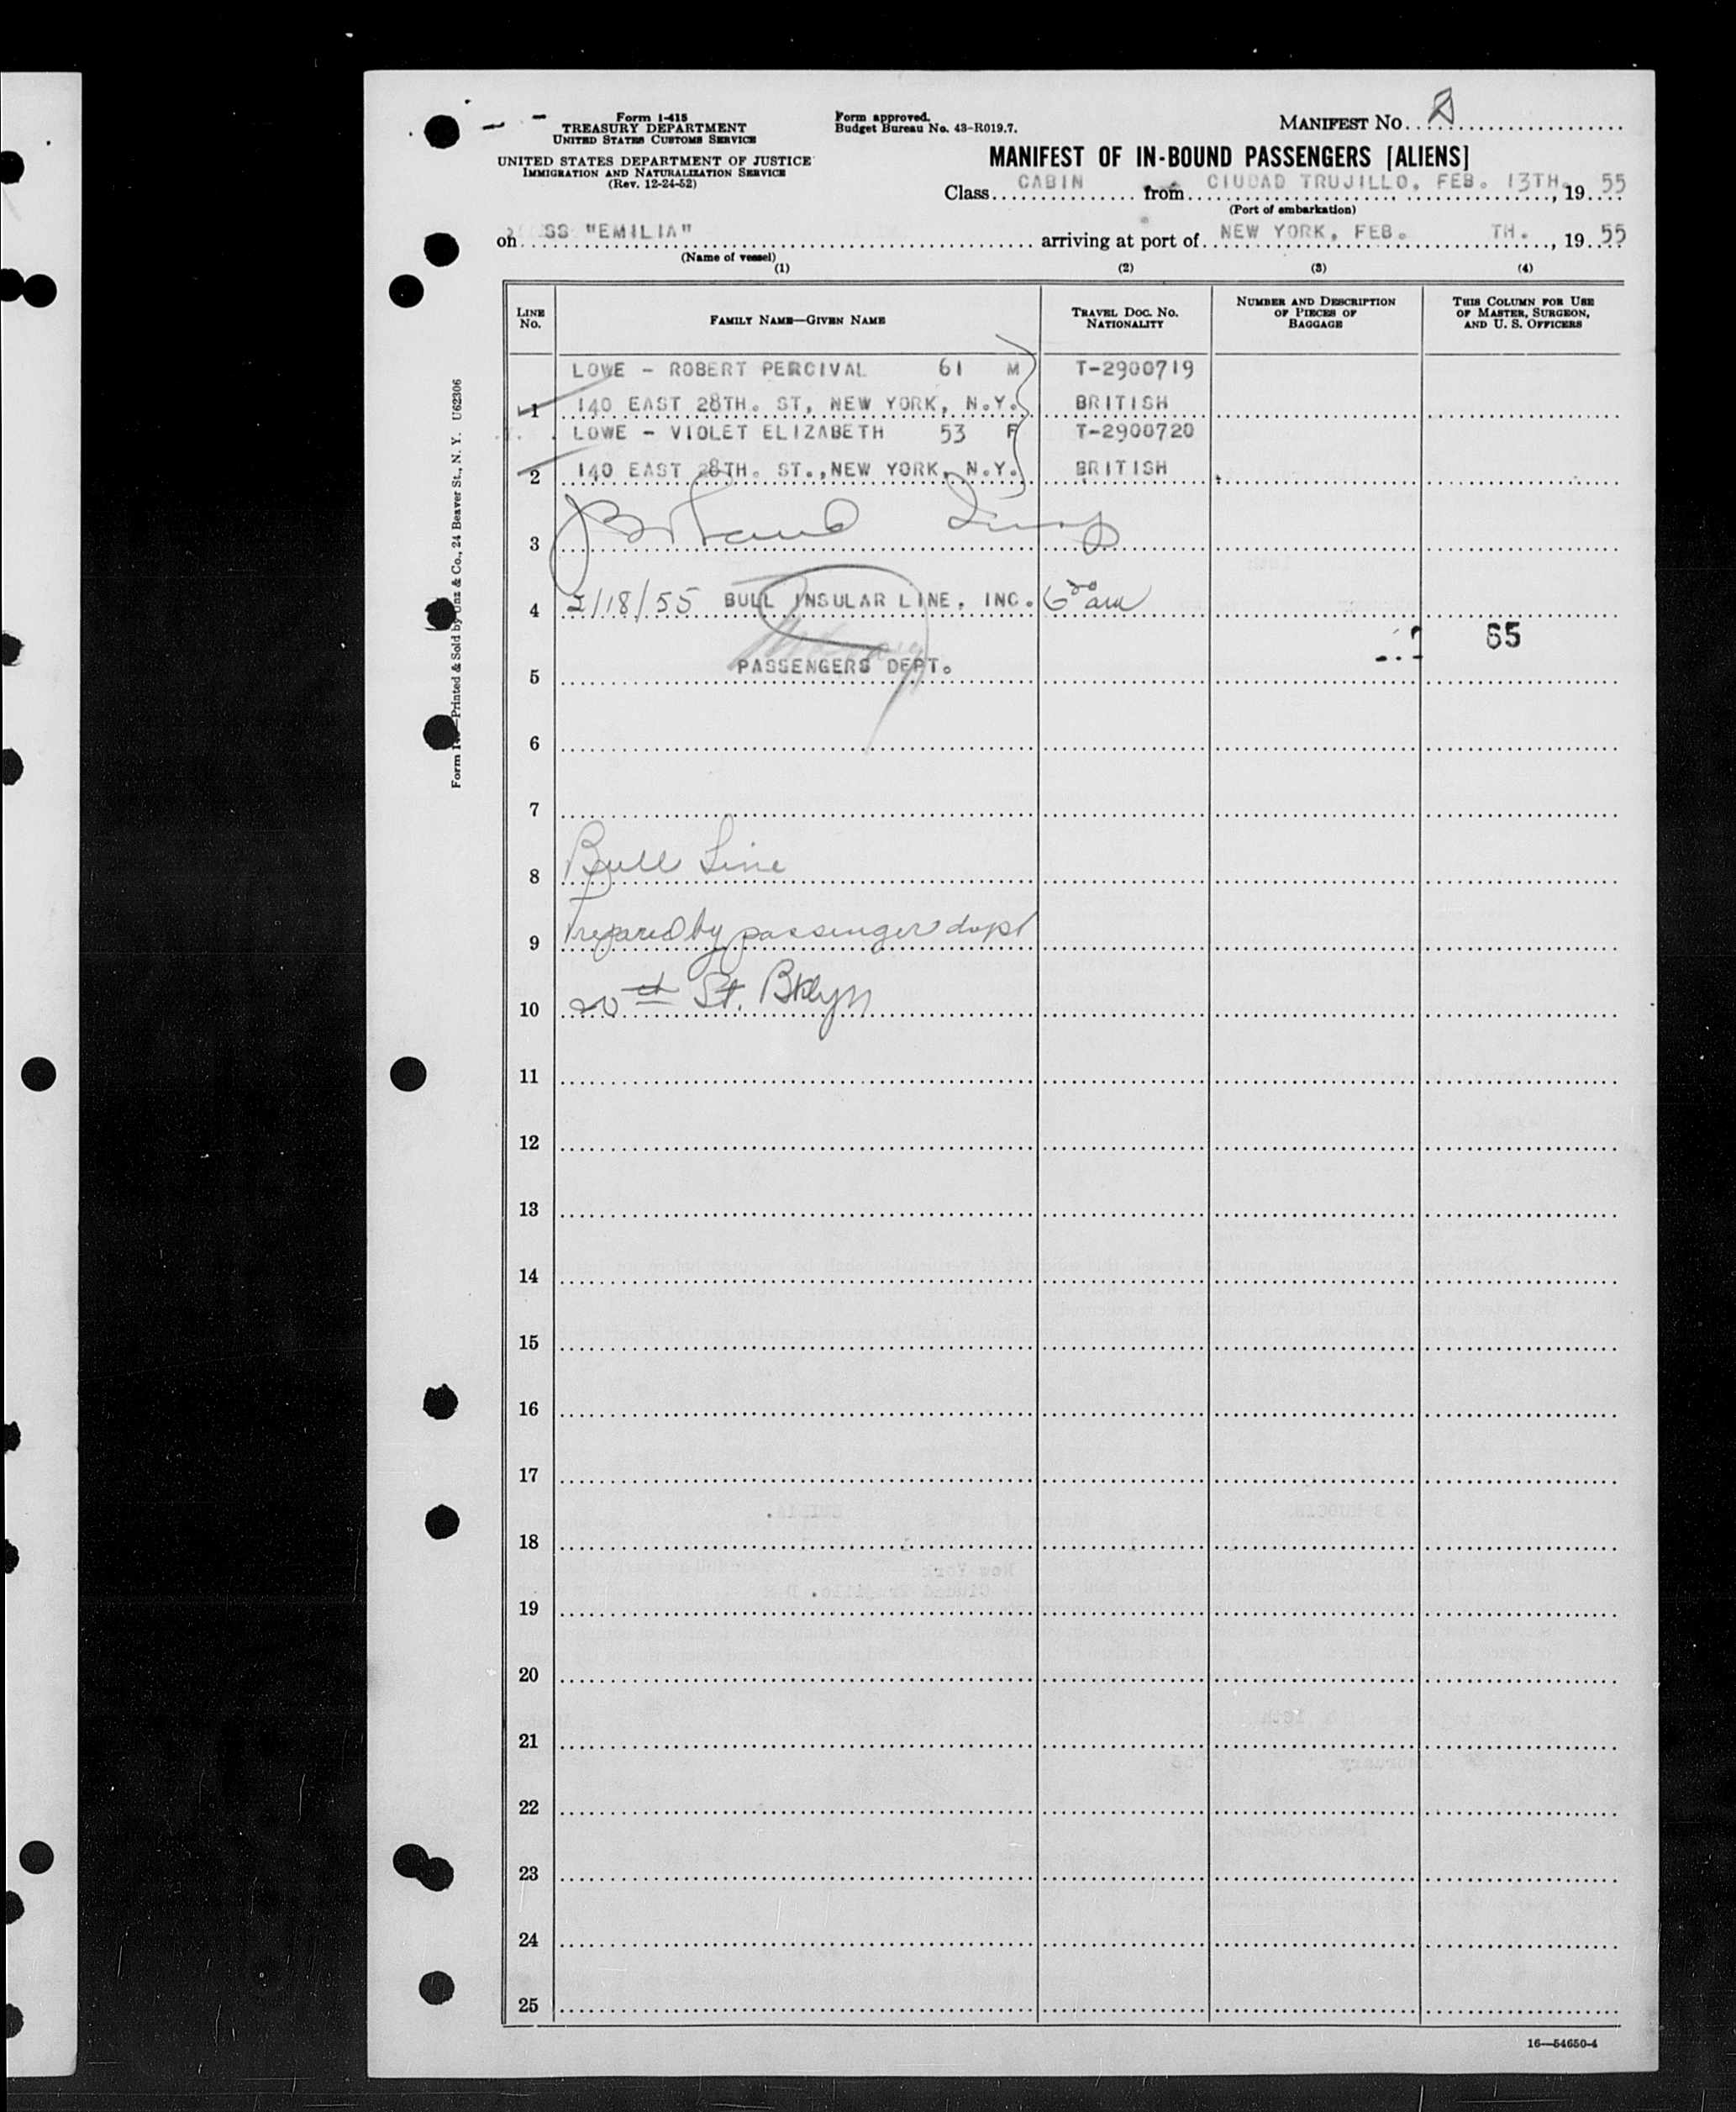 Form I-415
TREASURY DEPARTMENT
UNITED STATES CUSTOMS SERVICE
UNITED STATES DEPARTMENT OF JUSTICE
IMMIGRATION AND NATURALIZATION SERVICE
(Rev. 12-24-52)
Form approved.
Budget Bureau No. 43-R019.7.
MANIFEST NO. 2
MANIFEST OF IN-BOUND PASSENGERS [ALIENS]
Class CABIN from CIUDAD TRUJILLO, FEB. 13TH, 19 55
(Port of embarkation)
on SS "EMILIA" arriving at port of NEW YORK, FEB. TH. , 19 55
(Name of vessel)
(1) (2) (3) (4)
LINE NO. FAMILY NAME—GIVEN NAME TRAVEL DOC. NO. NATIONALITY NUMBER AND DESCRIPTION OF PIECES OF BAGGAGE THIS COLUMN FOR USE OF MASTER, SURGEON, AND U. S. OFFICERS
LOWE - ROBERT PERCIVAL 61 M T-2900719
1 140 EAST 28TH. ST, NEW YORK, N.Y. BRITISH
LOWE - VIOLET ELIZABETH 53 F T-2900720
2 140 EAST 28TH. ST., NEW YORK, N.Y. BRITISH
3
4 2/18/55 BULL INSULAR LINE, INC. 6 00 am
65
5 PASSENGERS DEPT.
6
7
8 Bull Line
9 Prepared by passenger dept
10 20th St. Bklyn
11
12
13
14
15
16
17
18
19
20
21
22
23
24
25
16—54650-4
Printed & Sold by Unz & Co., 24 Beaver St., N. Y. U62306